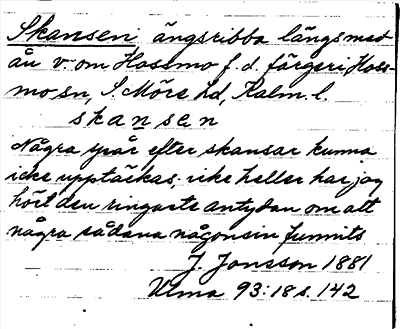 Skansen ängsribba längsmed
ån v. om Hossmo f.d. färgeri, Hoss-
mo sn, S. Möre hd, Kalm. l.
skansen
Några spår efter skansar kunna
icke upptäckas, icke heller har jag
hört den ringaste antydan om att
några sådana någonsin funnits
J. Jonsson 1881
Ulma 93:18 s. 142